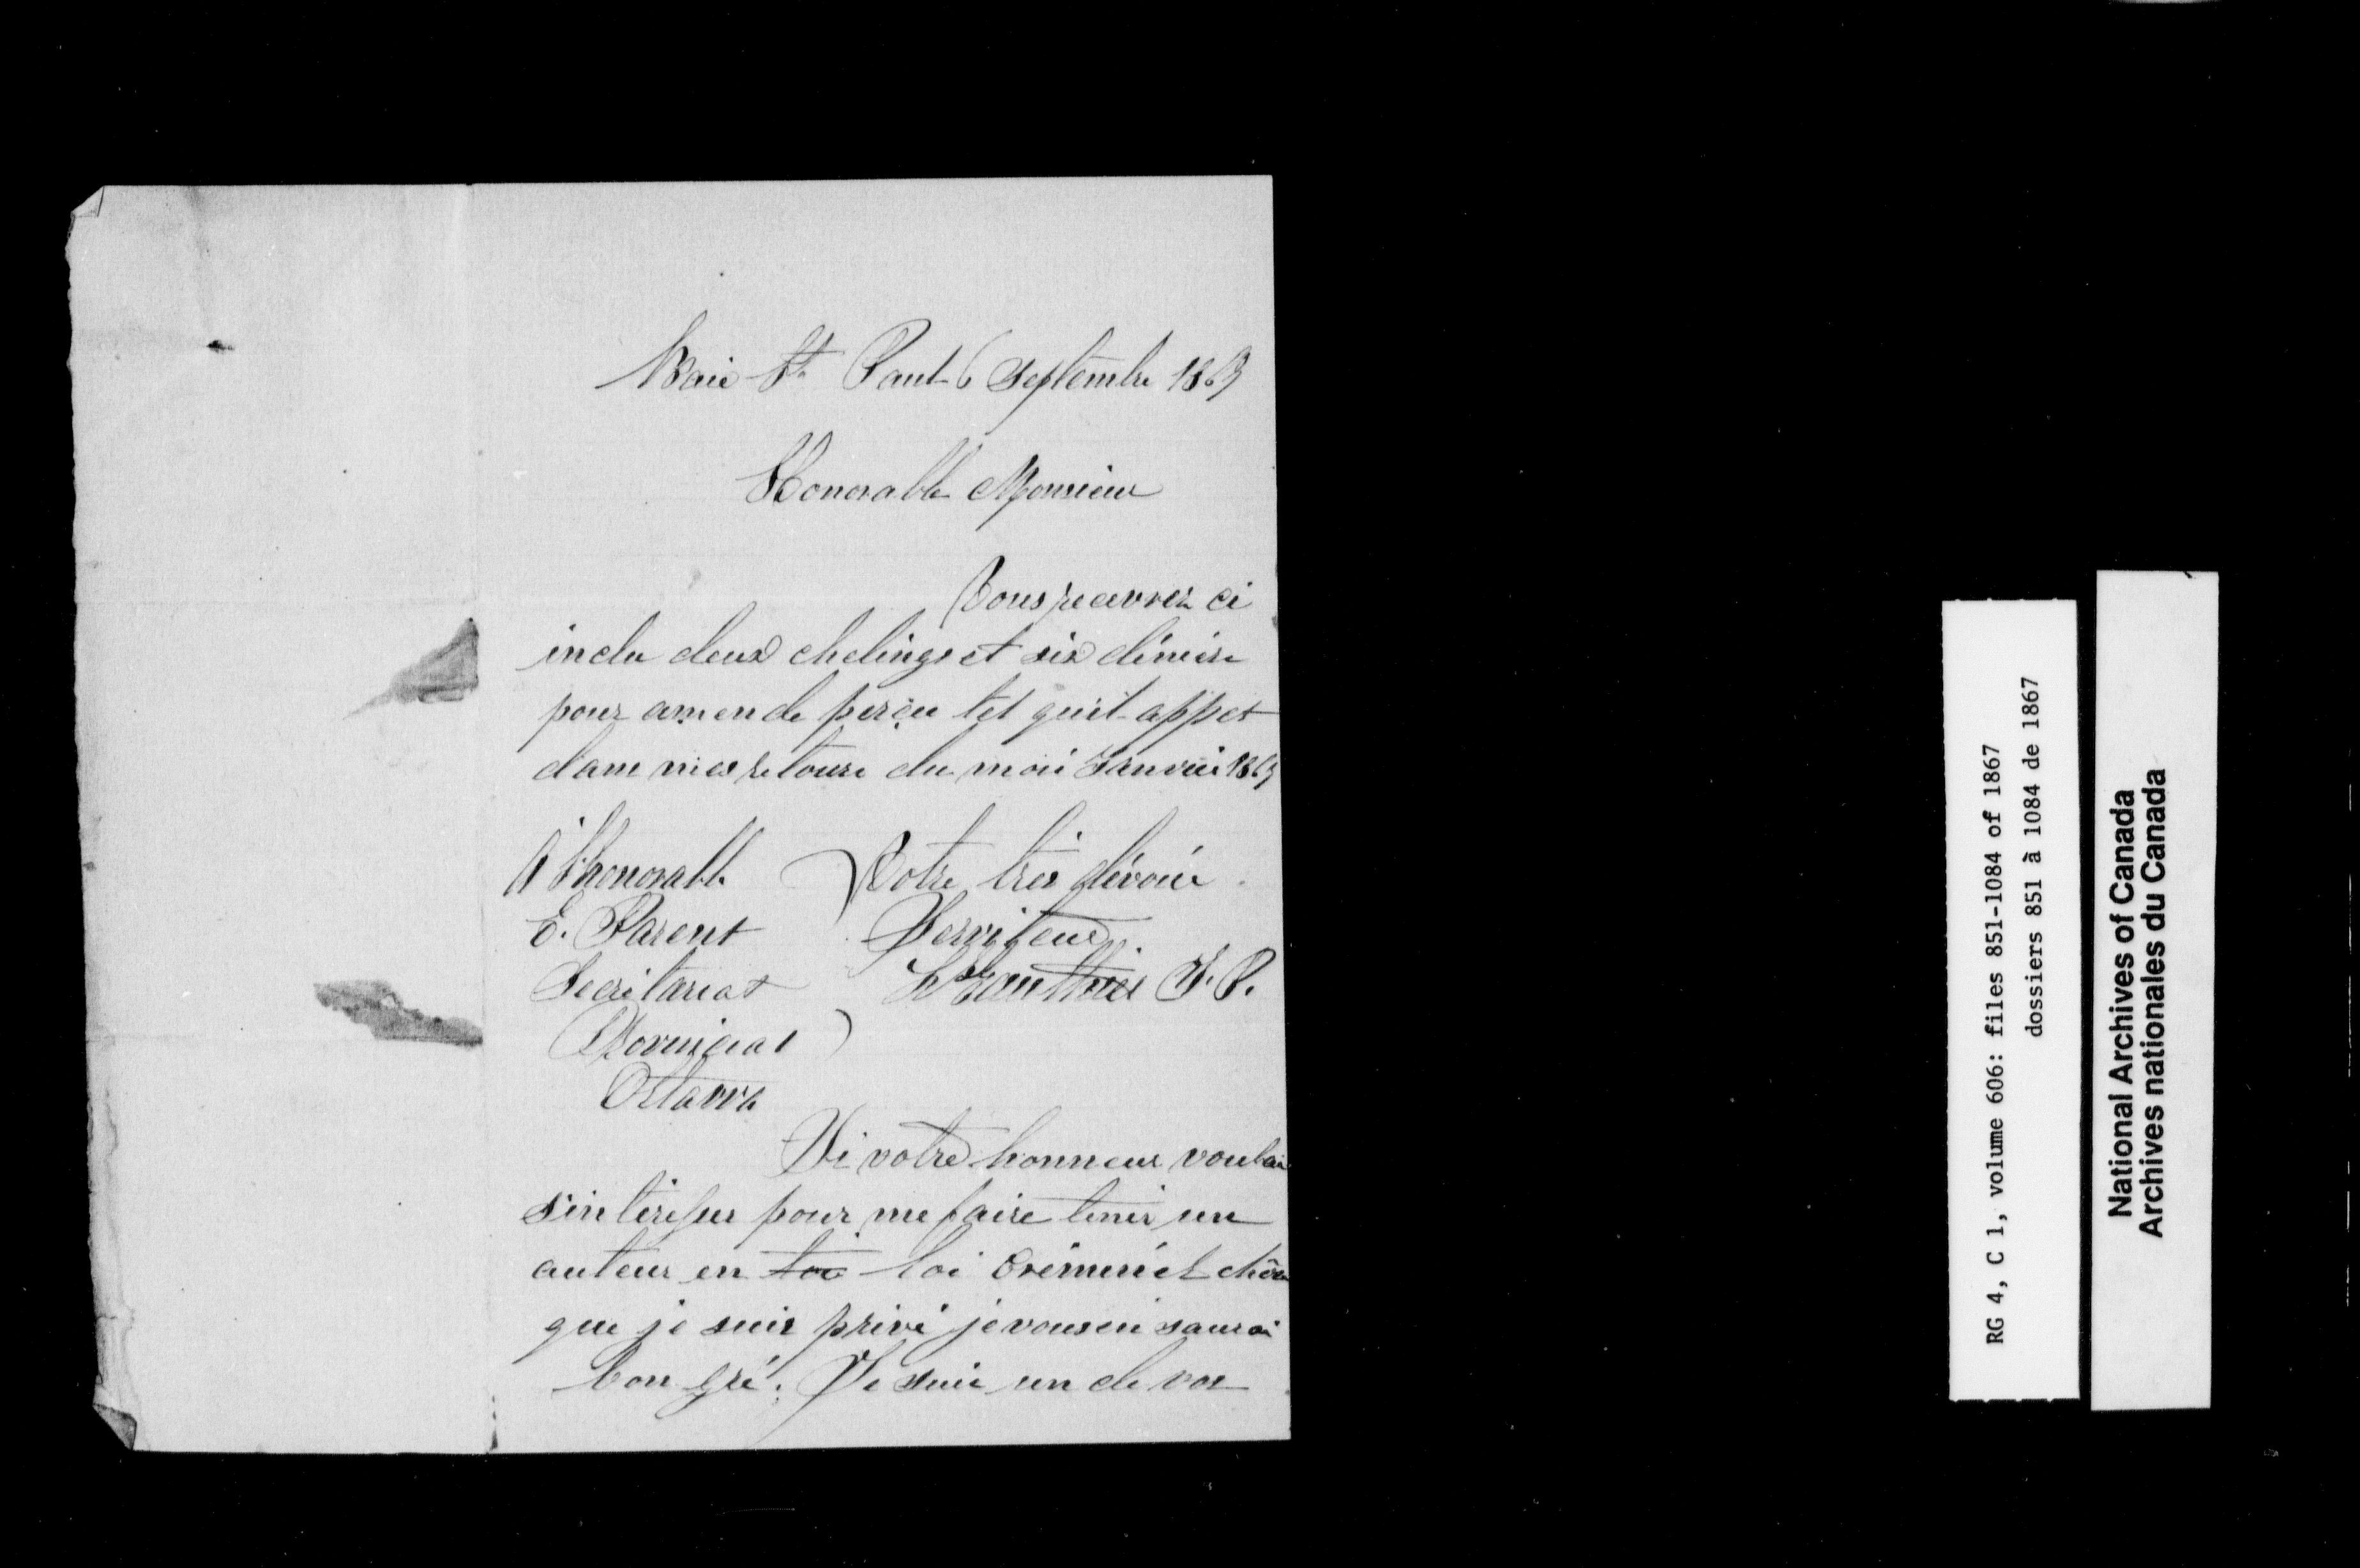 Baie St. Paul 6 Septembre 1867
Honorable Monsieur
Vous recevrez ci
inclu deux chelings et six deniers
pour amende perçu tel qu'il appet
dans mes retours du mois Janvier 1867
A l'honorable
E. Parent
Secrétariat
Provincial
Ottawa
Votre très dévoué
Serviteur
Gauthier J. P.
Si votre honneur voulai
s'intéresser pour me faire tenir un
auteur en loi criminel chôse
que je suis privé je vous en saurai
bon gré. Je suis un de vos
RG 4, C 1, volume 606: files 851-1084 of 1867
dossiers 851 à 1084 de 1867
National Archives of Canada
Archives nationales du Canada